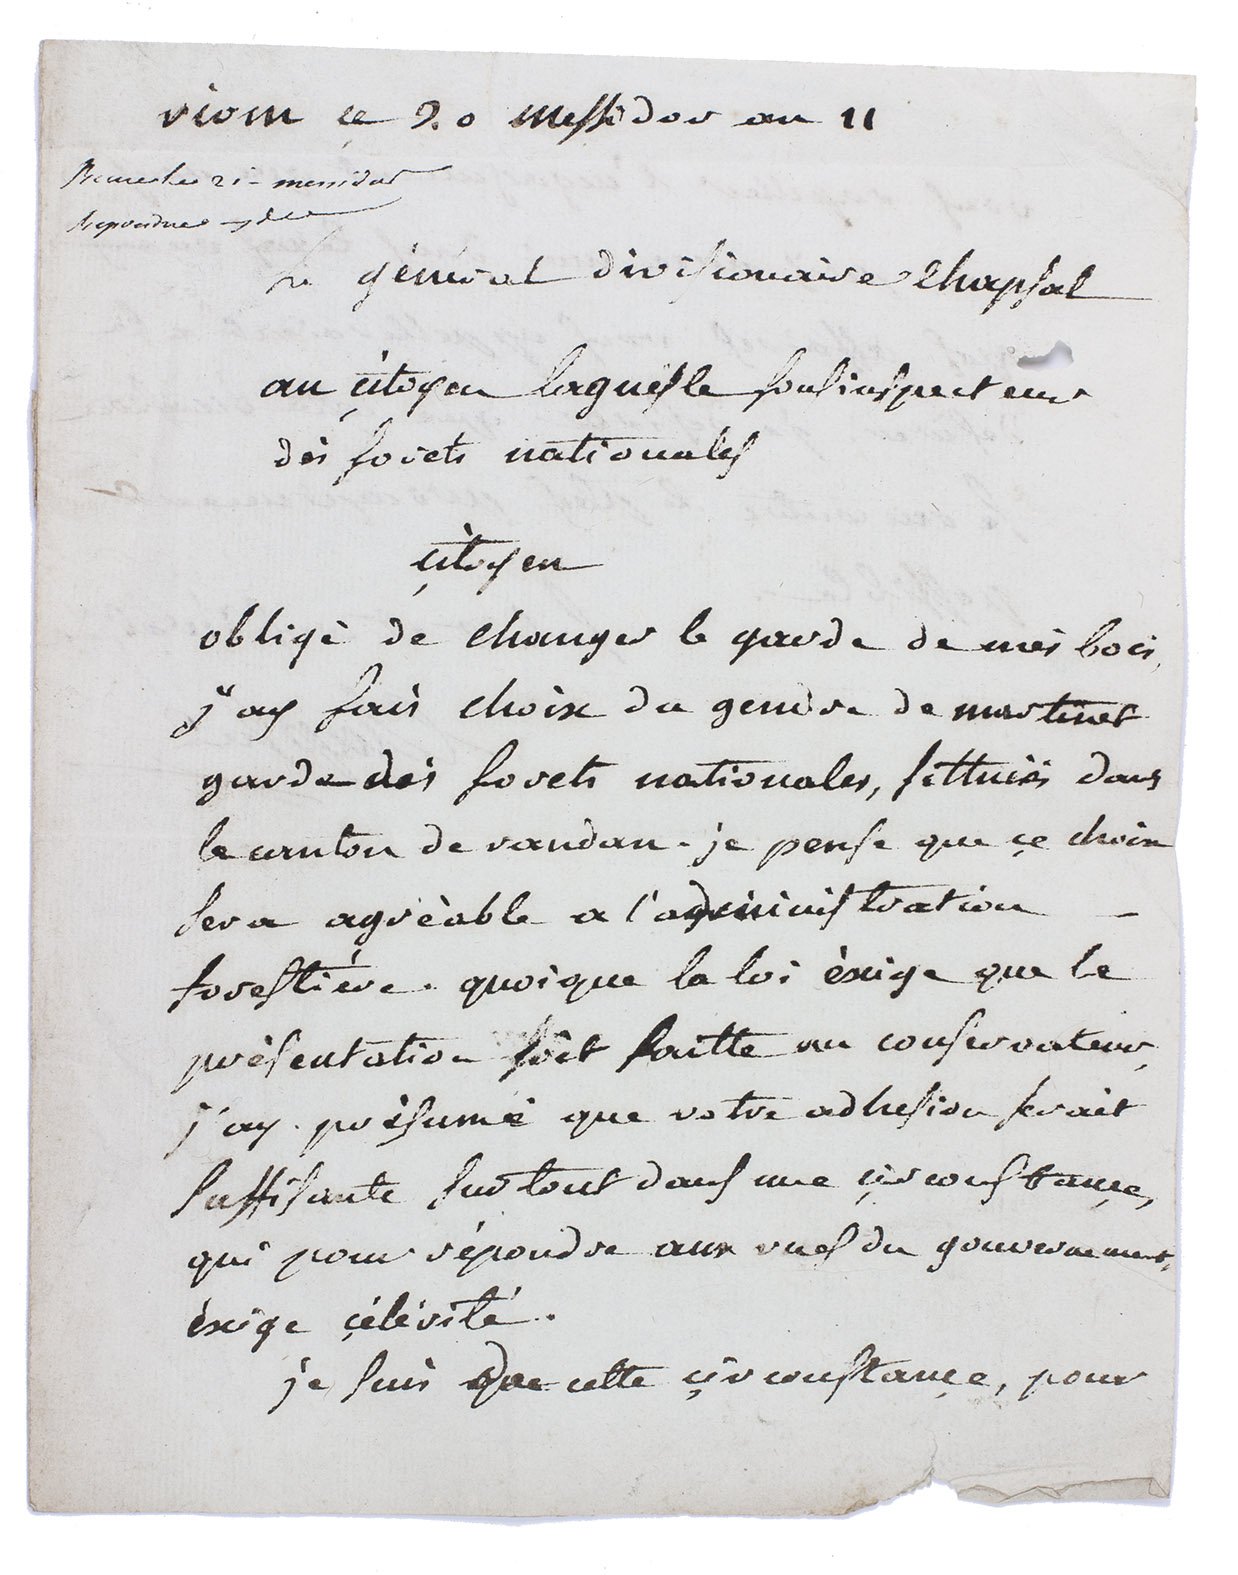 riom çe 20 messidor an 11
21 messidor
le général divisionaire Chapsal
au çitoyen laguesle sousinspecteur
dès forets nationales
çitoyen
obligè de changer le garde de mès bois,
j'ay fais choix du gendre de martinet
garde dès forets nationales, sittuèés dans
le canton de randan. je pense que çe choix
sera agrèable a l'administration
forestiére. quoique la loi èxige que le
prèsentation soit faitte au conservateur,
j'ay prèsumé que votre adhesion serait
suffisante surtout dans une çirconstançe,
qui pour répondre aux vues du gouvernement,
èxige çélérité.
je suis que cette çirconstançe, pour